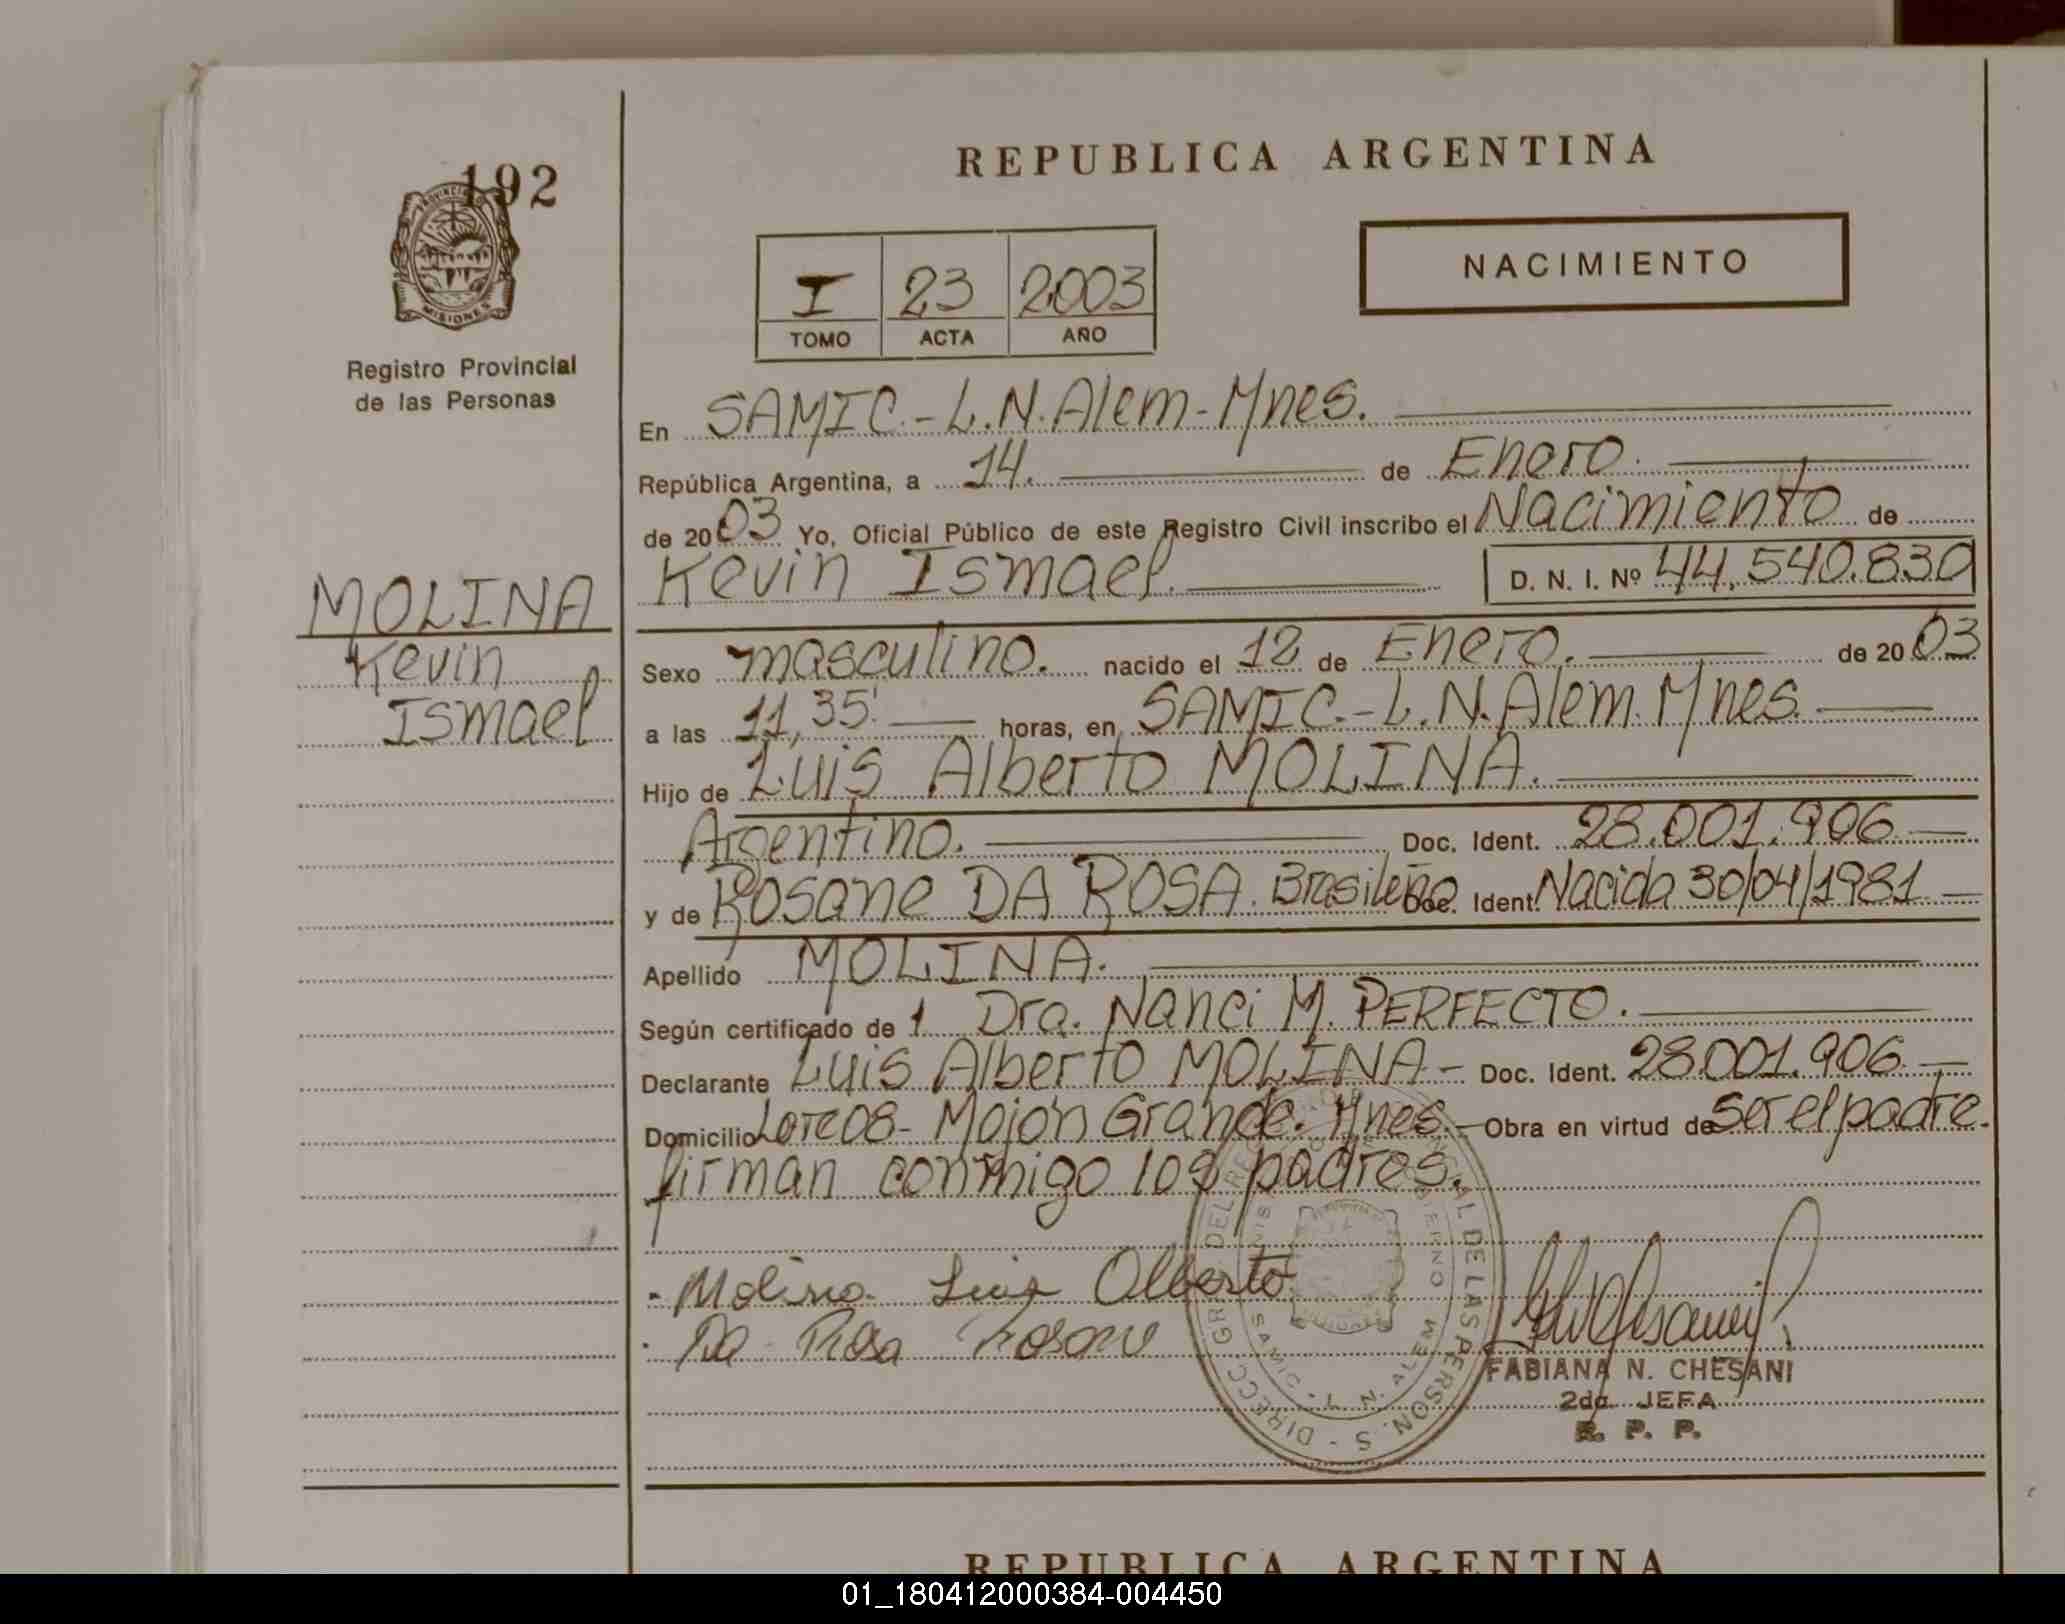 192
PROVINCIA
MISIONES
Registro Provincial
de las Personas
REPUBLICA ARGENTINA
I 23 2003
TOMO ACTA AÑO
NACIMIENTO
En SAMIC.-L.N.Alem-Mnes.
República Argentina, a 14. de Enero.
de 2003 Yo, Oficial Público de este Registro Civil inscribo el Nacimiento de
Kevin Ismael. D. N. I. Nº 44.540.830
MOLINA
Kevin
Ismael
Sexo masculino. nacido el 12 de Enero. de 2003
a las 11,35' horas, en SAMIC.-L.N.Alem.Mnes.
Hijo de Luis Alberto MOLINA.
Argentino. Doc. Ident. 28.001.906
y de Rosane DA ROSA. Brasileña Doc. Ident. Nacida 30/04/1981
Apellido MOLINA.
Según certificado de 1 Dra. Nanci M. PERFECTO.
Declarante Luis Alberto MOLINA- Doc. Ident. 28.001.906
Domicilio Lote 08- Mojón Grande. Mnes. Obra en virtud de ser el padre.
firman conmigo los padres.
Molina Luis Alberto
Da Rosa Rosane
SAMIC - L. N. ALEM
FABIANA N. CHESANI
2da. JEFA
R. P. P.
REPUBLICA ARGENTINA
01_180412000384-004450